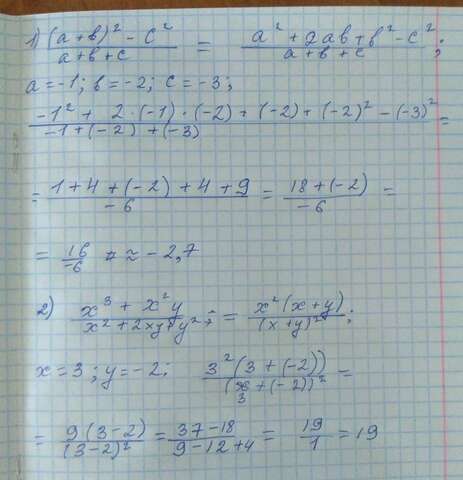 1) (a+b)² - c² / a+b+c = a² + 2ab + b² - c² / a+b+c ;
a = -1 ; b = -2 ; c = -3 ;
-1² + 2·(-1)·(-2) + (-2) + (-2)² - (-3)² / -1 + (-2) + (-3) =
= 1 + 4 + (-2) + 4 + 9 / -6 = 18 + (-2) / -6 =
= 16 / -6 ≈ - 2,7
2) x³ + x²y / x² + 2xy + y² ; = x²(x+y) / (x+y)² ;
x = 3 ; y = -2 ; 3²(3 + (-2)) / (3 + (-2))² =
= 9(3-2) / (3-2)² = 37-18 / 9-12+4 = 19 / 1 = 19